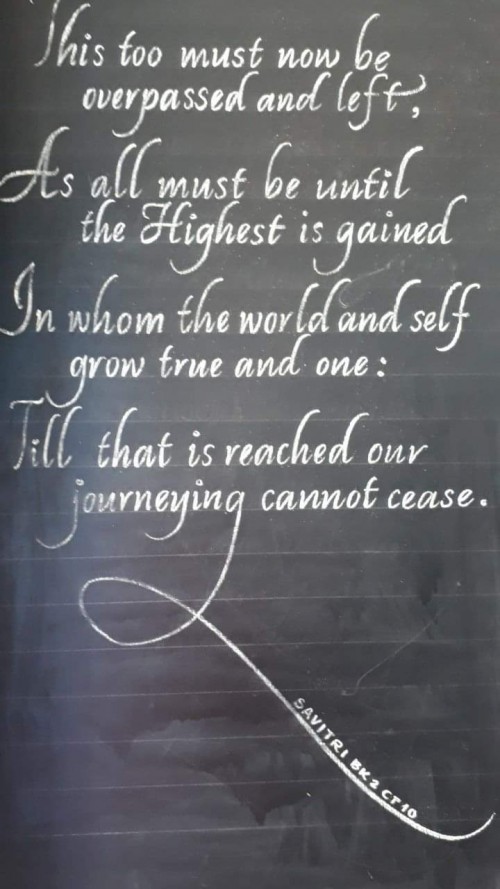 This too must now be
overpassed and left,
As all must be until
the Highest is gained
In whom the world and self
grow true and one:
Till that is reached our
journeying cannot cease.
SAVITRI BK 2 CT 10